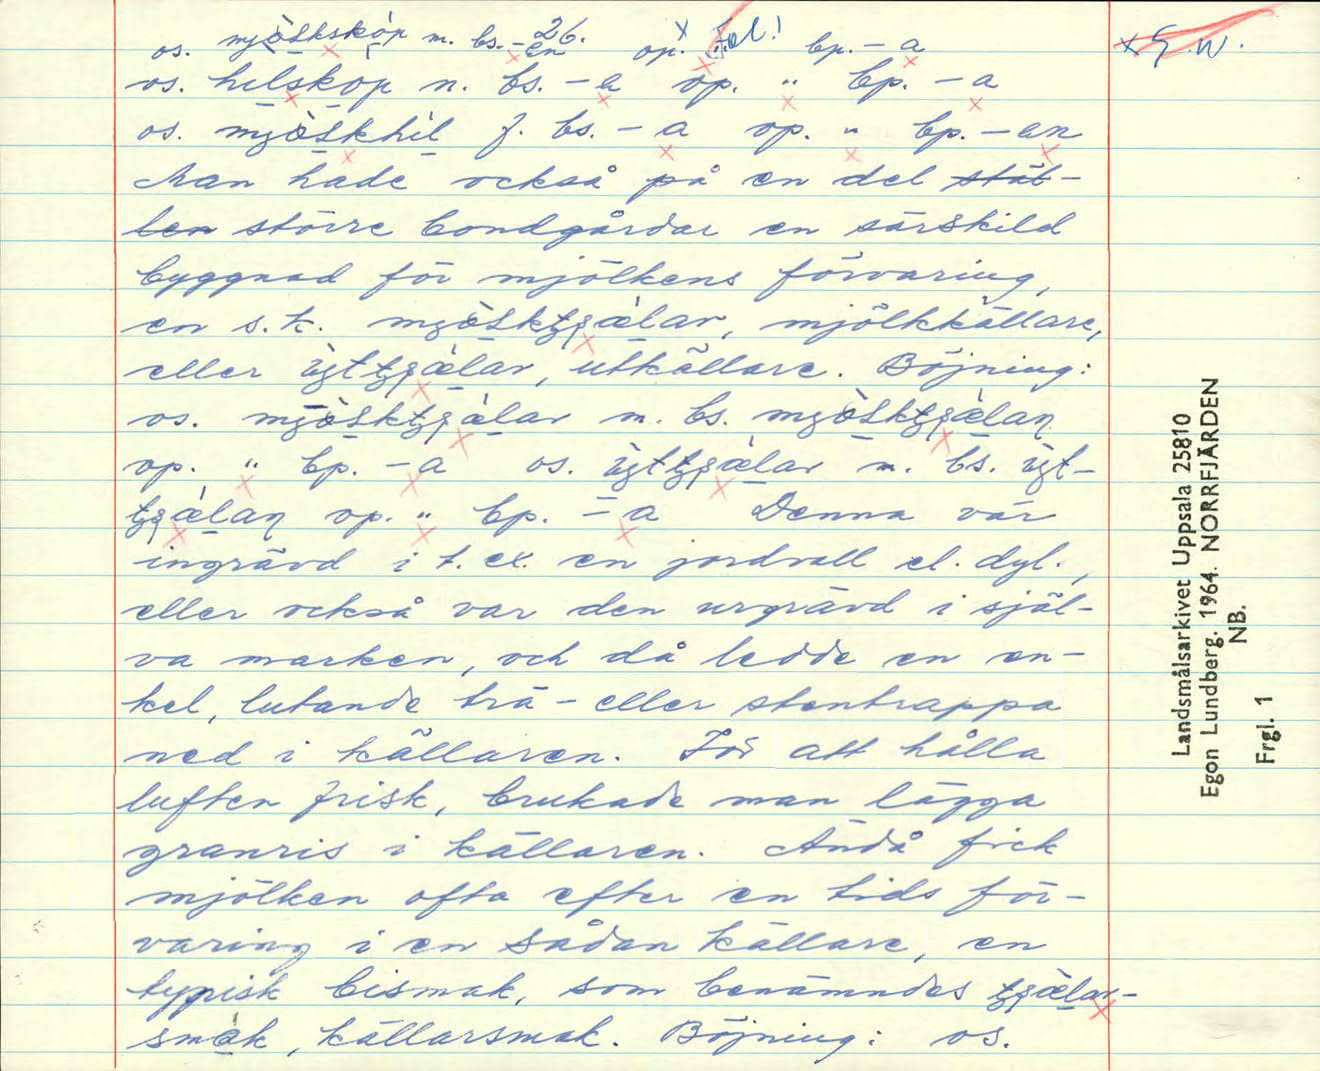 26.
os. mjòlkskóp m. bs. -en op. " Fel! bp. - a
x E.W.
os. hilskop n. bs. - e op. " bp. - a
os. mjòlkhil f. bs. - a op. " bp. - en
Man hade också på en del stäl-
len större bondgårdar en särskild
byggnad för mjölkens förvaring,
en s.k. , mjölkkällare,
eller , utkällare. Böjning:
os. m. bs.
op. " bp. - a os. m. bs.
op. " bp. - a Denna var
ingrävd i t. ex. en jordvall el. dyl.,
eller också var den urgrävd i själ-
va marken, och då ledde en en-
kel, lutande trä- eller stentrappa
ned i källaren. För att hålla
luften frisk, brukade man lägga
granris i källaren. Ändå fick
mjölken ofta efter en tids för-
varing i en sådan källare, en
typisk bismak, som benämndes
smak, källarsmak. Böjning: os.
Landsmålsarkivet Uppsala 25810
Egon Lundberg. 1964. NORRFJÄRDEN
NB.
Frgl. 1